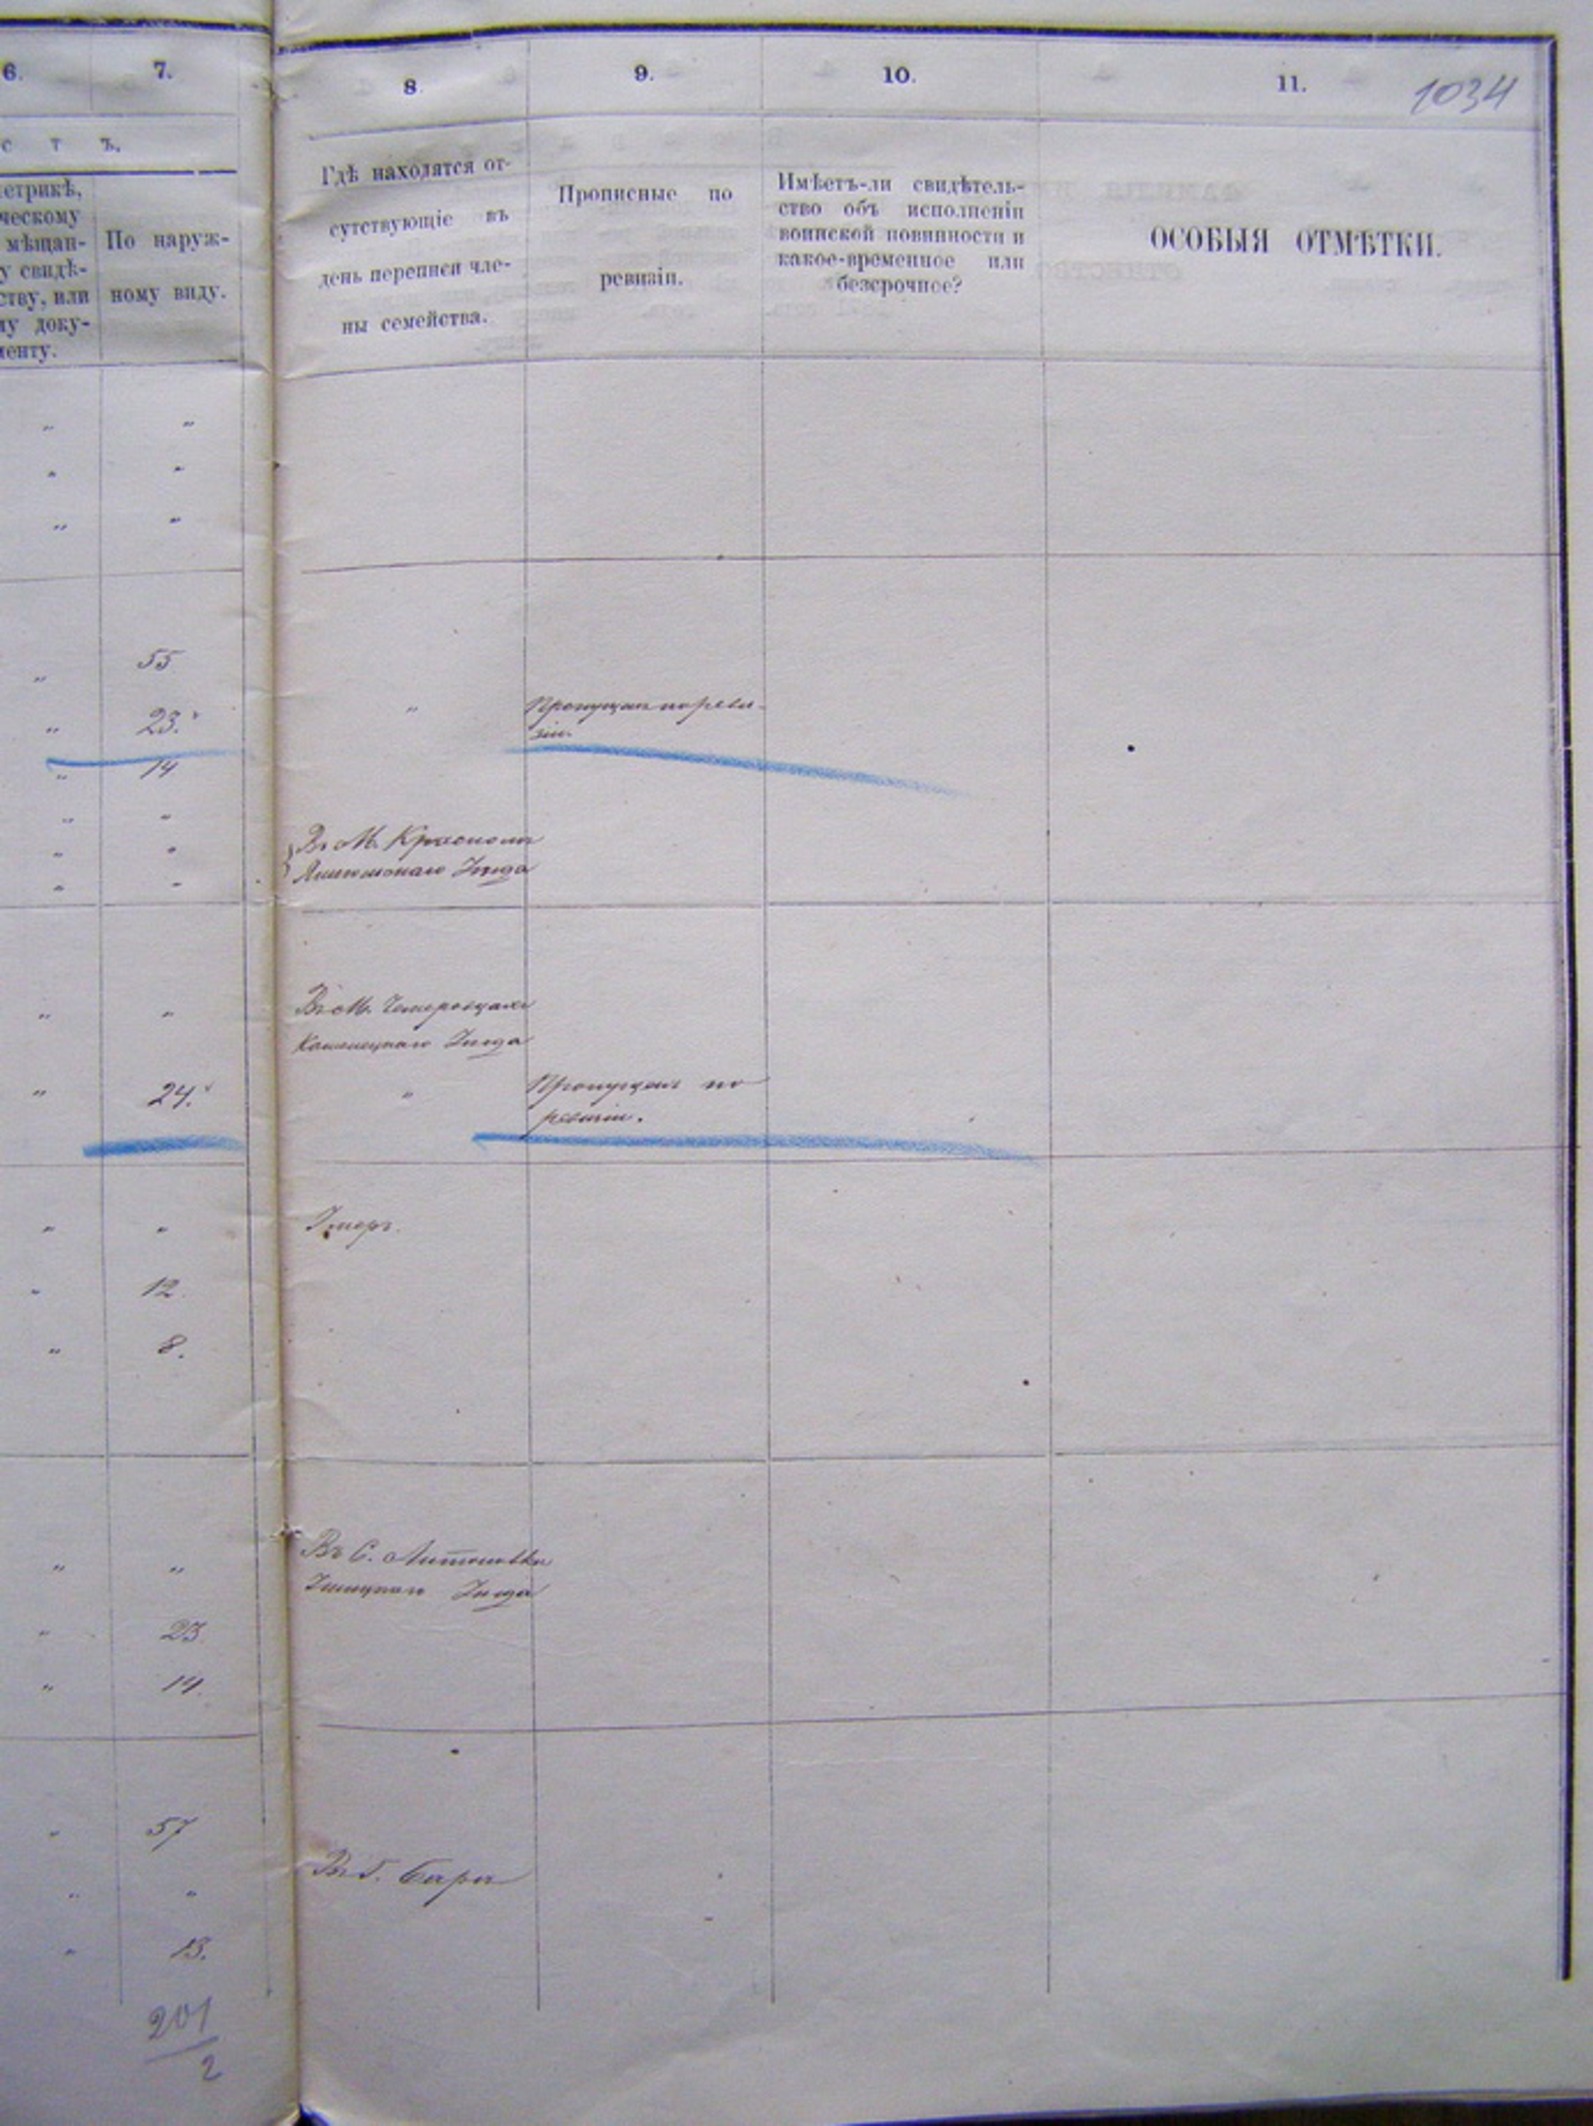 6.
7.
8.
9.
10.
11.
1034
с т ъ.
етрикѣ,
ческому
мѣщан-
у свидѣ-
ству, или
му доку-
менту.
По наруж-
ному виду.
Гдѣ находятся от-
сутствующіе въ
день переписи чле-
ны семейства.
Прописные по
ревизіи.
Имѣетъ-ли свидѣтель-
ство объ исполненіи
воинской повинности и
какое-временное или
безсрочное?
ОСОБЫЯ ОТМѢТКИ.
„ „
„ „
„ „
„ 55
„ 23. „ Пропущен по реви-
зіи.
„ 14
„ „
„ „ Въ М. Красномъ
„ „ Ямпольскаго Уѣзда
„ „ Въ М. Чемеровцахъ
Каменецкаго Уѣзда
„ 24. „ Пропущенъ по
ревизіи.
„ „ Умеръ.
„ 12.
„ 8.
„ „ Въ С.
Ушицкаго Уѣзда
„ 23
„ 14.
„ 57
„ „ Въ Г. Барѣ
„ 13.
201
2